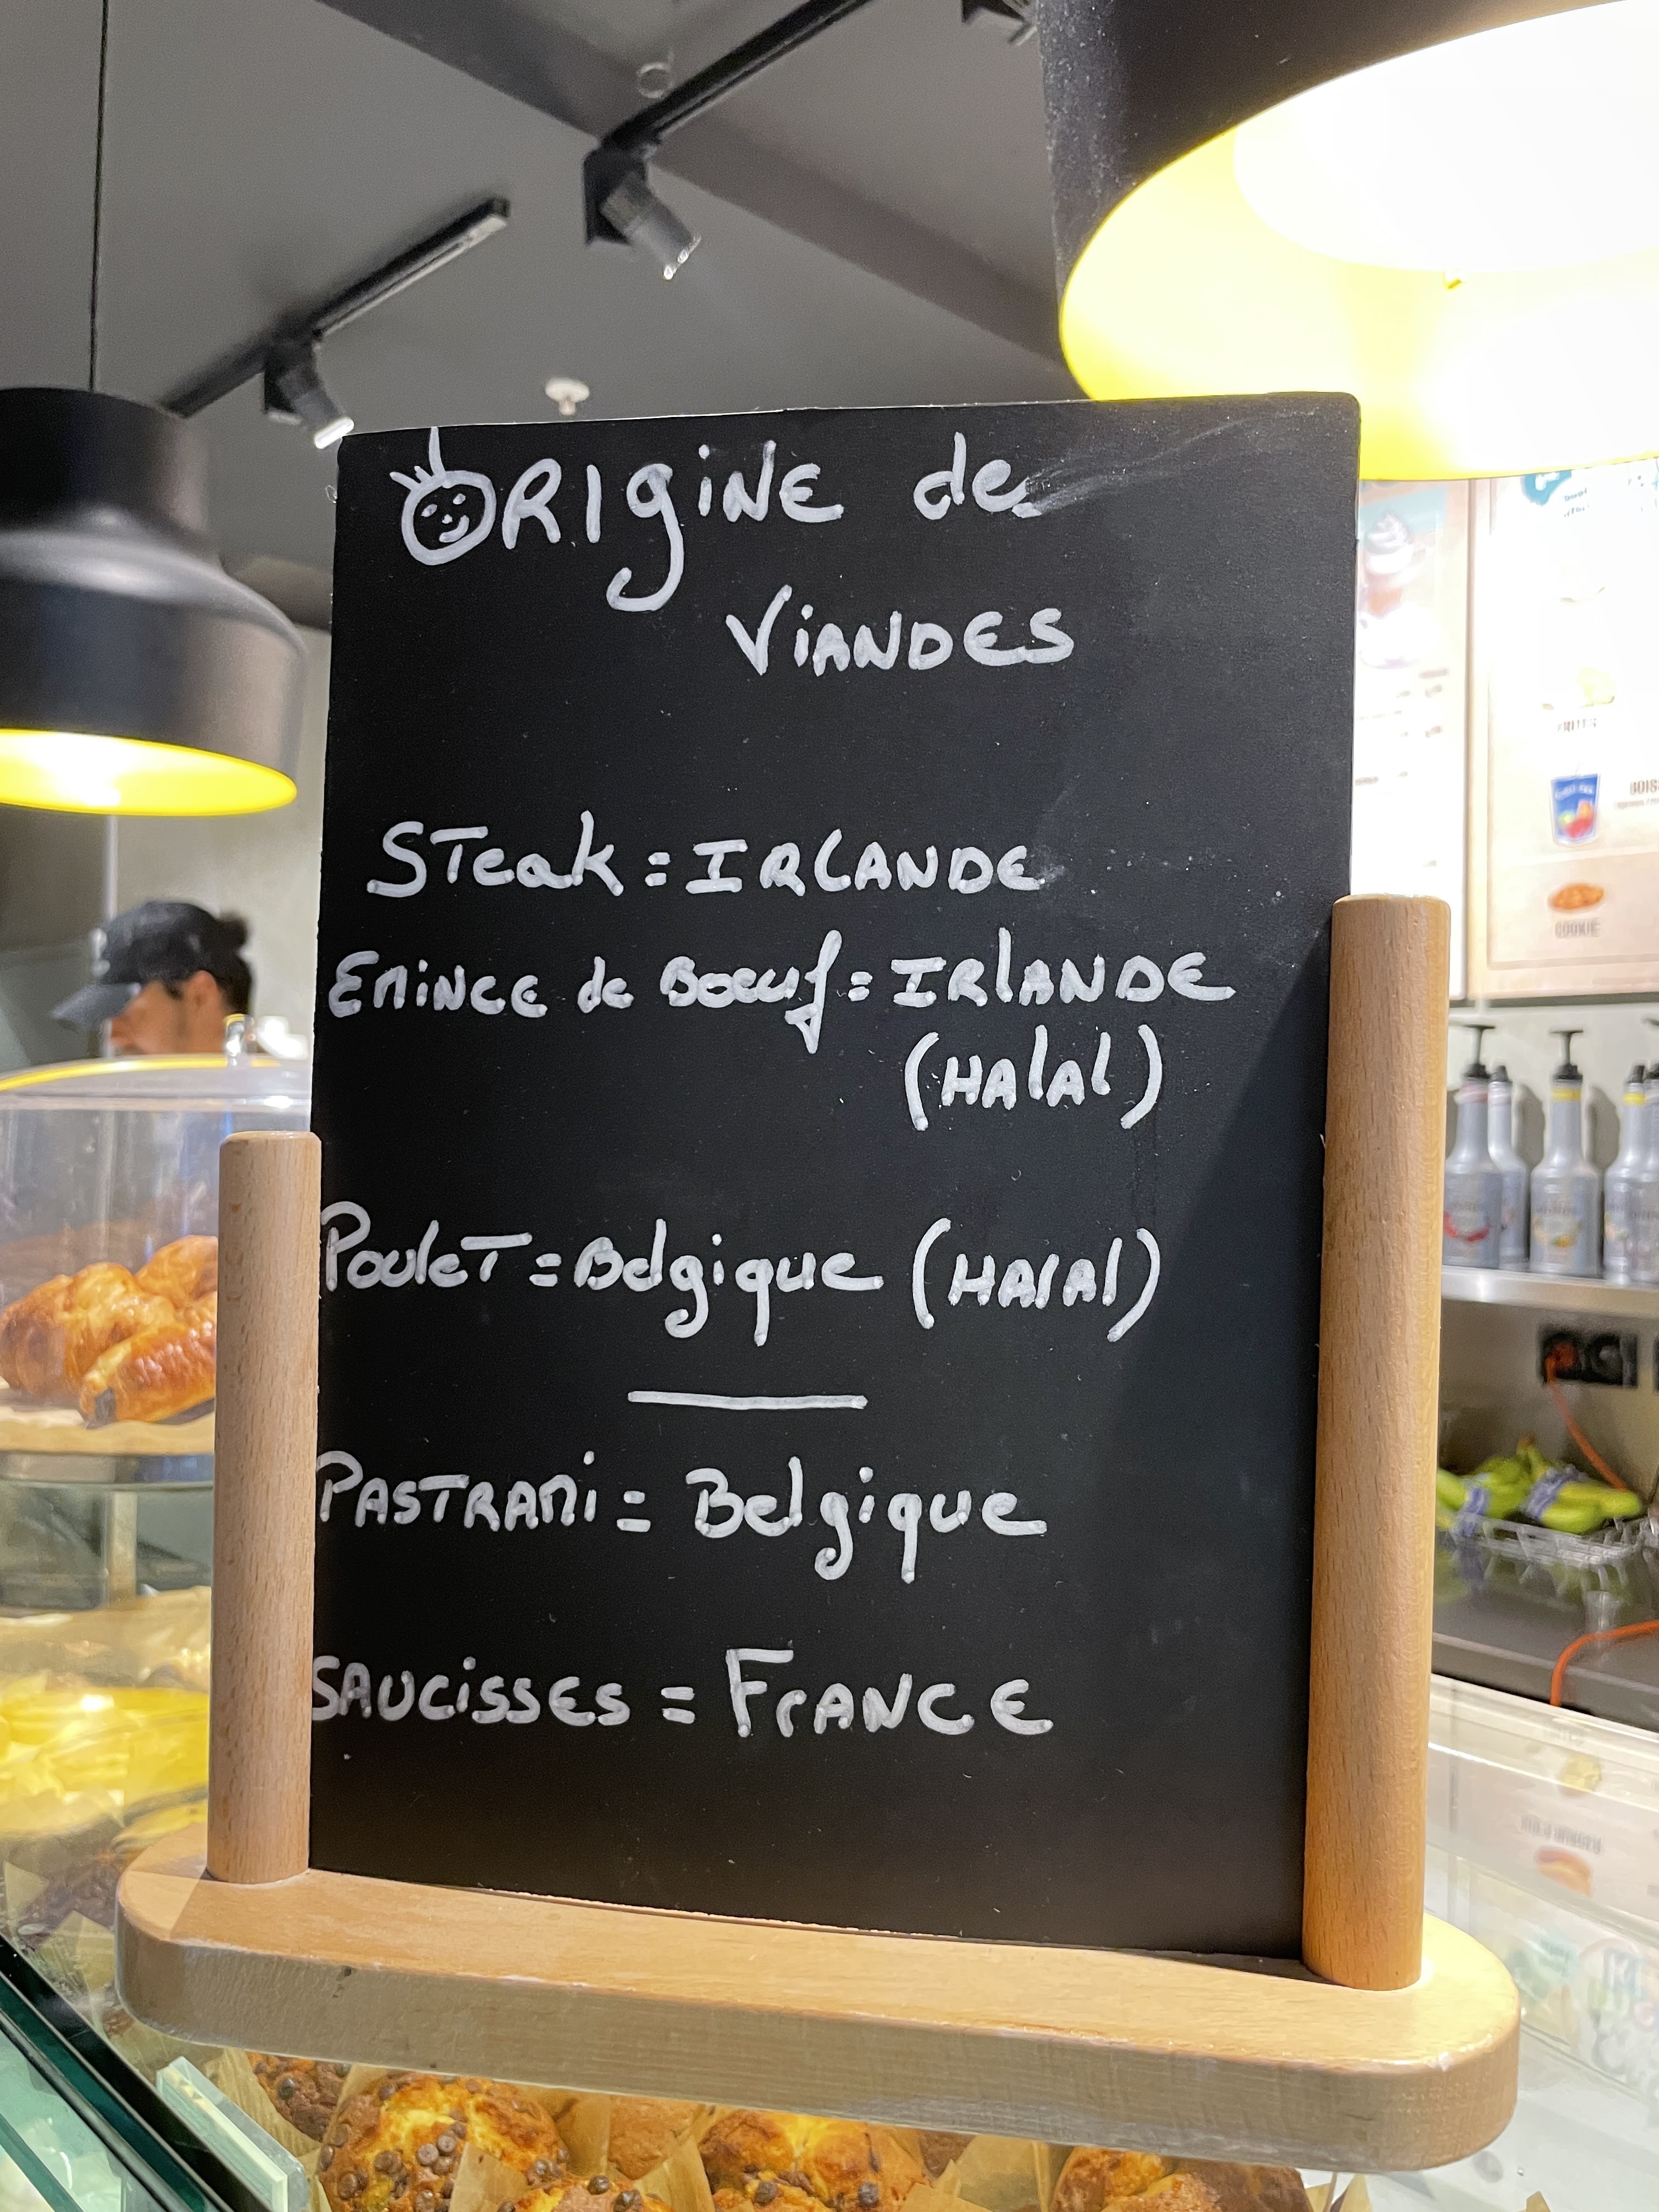 ORIgiNE de
ViANDES
STeak = IRLANDE
EMiNCE de Boeuf = IRlANDE
(HAlAl)
PouleT = Belgique (HAlAl)
PASTRAMi = Belgique
SAUCiSSES = FrANCE
FRITES
COOKIE